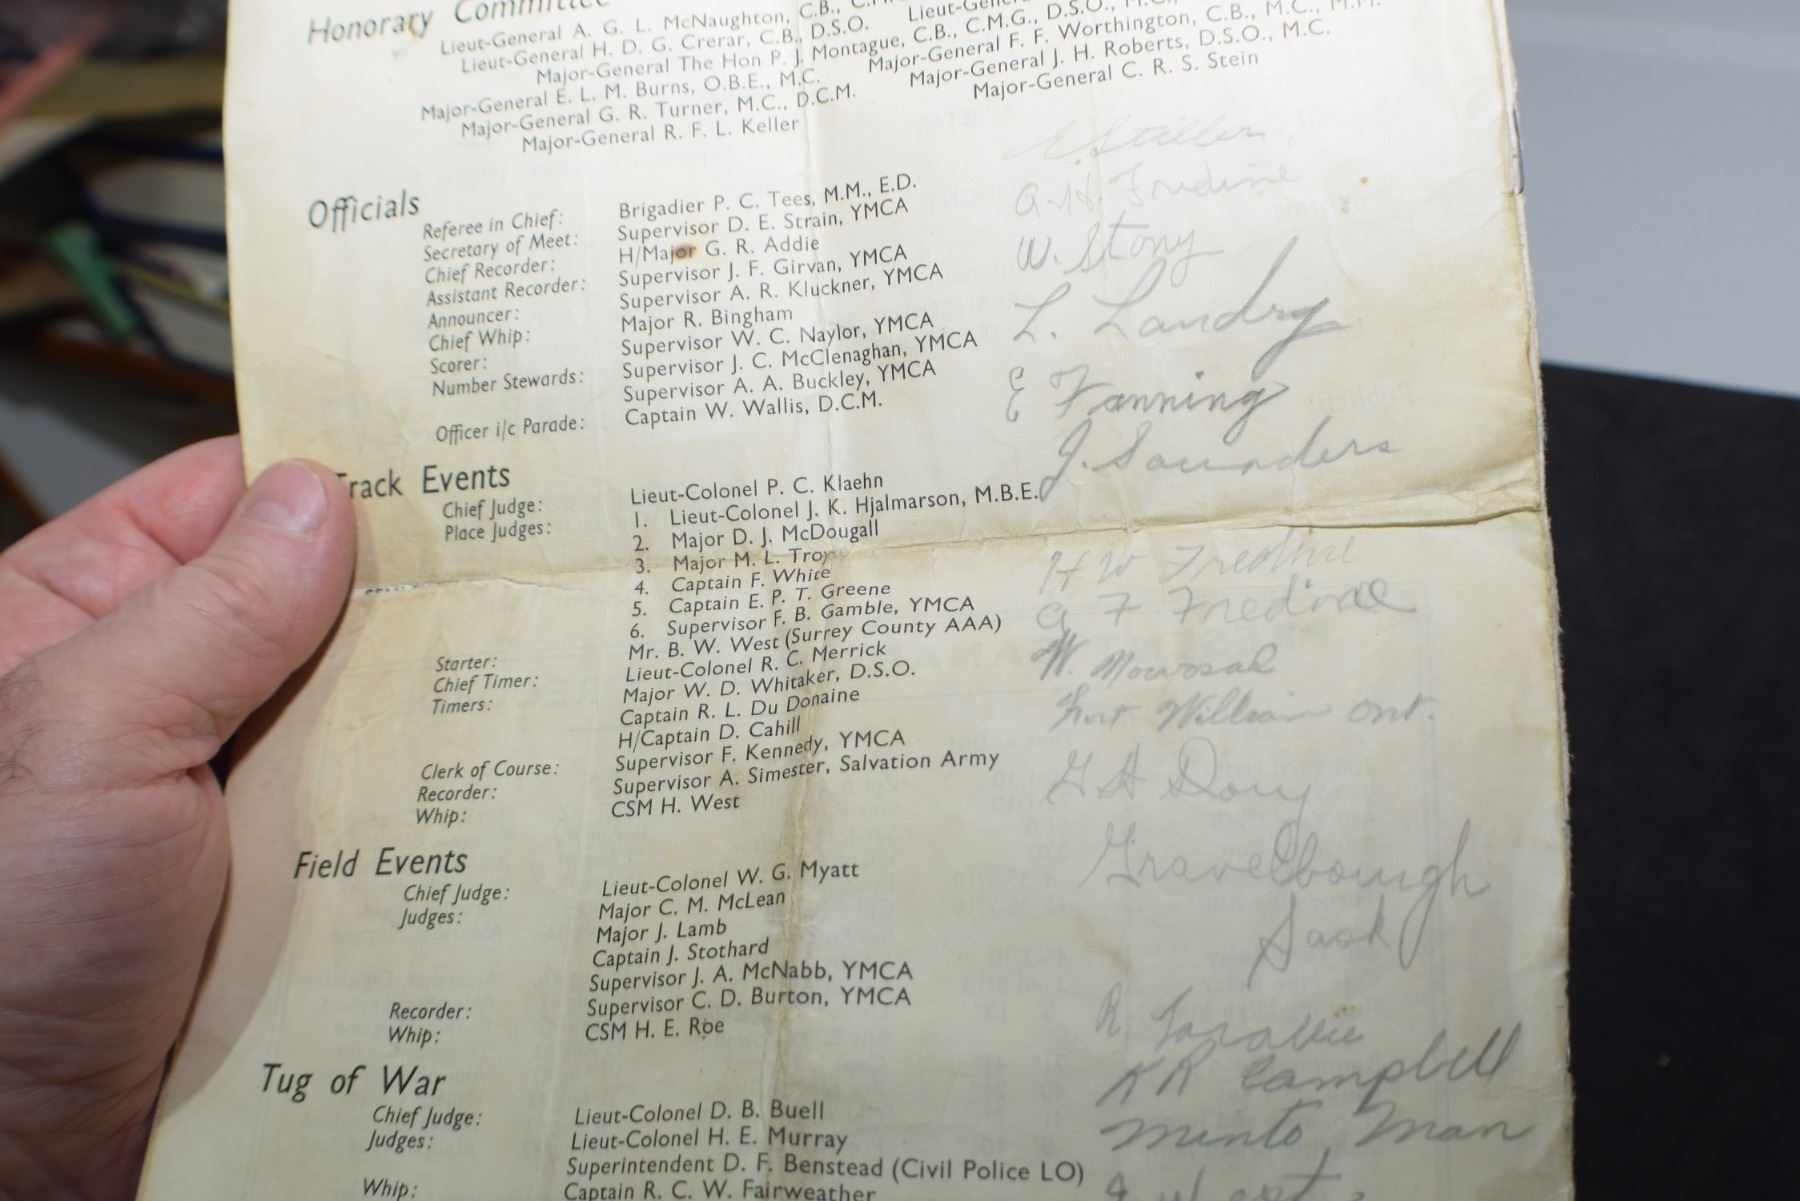 Honorary Committee
Lieut-General A. G. L. McNaughton, C.B.,
Lieut-General H. D. G. Crerar, C.B., D.S.O.
Major-General The Hon P. J. Montague, C.B., C.M.G., D.S.O.,
Major-General E. L. M. Burns, O.B.E., M.C.
Major-General F. F. Worthington, C.B., M.C., M.M.
Major-General G. R. Turner, M.C., D.C.M.
Major-General J. H. Roberts, D.S.O., M.C.
Major-General R. F. L. Keller
Major-General C. R. S. Stein
Officials
Referee in Chief: Brigadier P. C. Tees, M.M., E.D.
Secretary of Meet: Supervisor D. E. Strain, YMCA
Chief Recorder: H/Major G. R. Addie
Assistant Recorder: Supervisor J. F. Girvan, YMCA
Announcer: Supervisor A. R. Kluckner, YMCA
Chief Whip: Major R. Bingham
Scorer: Supervisor W. C. Naylor, YMCA
Number Stewards: Supervisor J. C. McClenaghan, YMCA
Supervisor A. A. Buckley, YMCA
Officer i/c Parade: Captain W. Wallis, D.C.M.
A. H. Fredine
W. Stony
L. Landry
E Fanning
J. Saunders
Track Events
Chief Judge: Lieut-Colonel P. C. Klaehn
Place Judges: 1. Lieut-Colonel J. K. Hjalmarson, M.B.E.
2. Major D. J. McDougall
3. Major M. L. Troy
4. Captain F. White
5. Captain E. P. T. Greene
6. Supervisor F. B. Gamble, YMCA
Starter: Mr. B. W. West (Surrey County AAA)
Chief Timer: Lieut-Colonel R. C. Merrick
Timers: Major W. D. Whitaker, D.S.O.
Captain R. L. Du Donaine
H/Captain D. Cahill
Clerk of Course: Supervisor F. Kennedy, YMCA
Recorder: Supervisor A. Simester, Salvation Army
Whip: CSM H. West
H W Fredine
A F Fredine
W. Nowosad
Fort William Ont.
G H Doug
Gravelbourgh
Sask
Field Events
Chief Judge: Lieut-Colonel W. G. Myatt
Judges: Major C. M. McLean
Major J. Lamb
Captain J. Stothard
Supervisor J. A. McNabb, YMCA
Recorder: Supervisor C. D. Burton, YMCA
Whip: CSM H. E. Roe
R
K R Campbell
Minto Man
Tug of War
Chief Judge: Lieut-Colonel D. B. Buell
Judges: Lieut-Colonel H. E. Murray
Superintendent D. F. Benstead (Civil Police LO)
Whip: Captain R. C. W. Fairweather